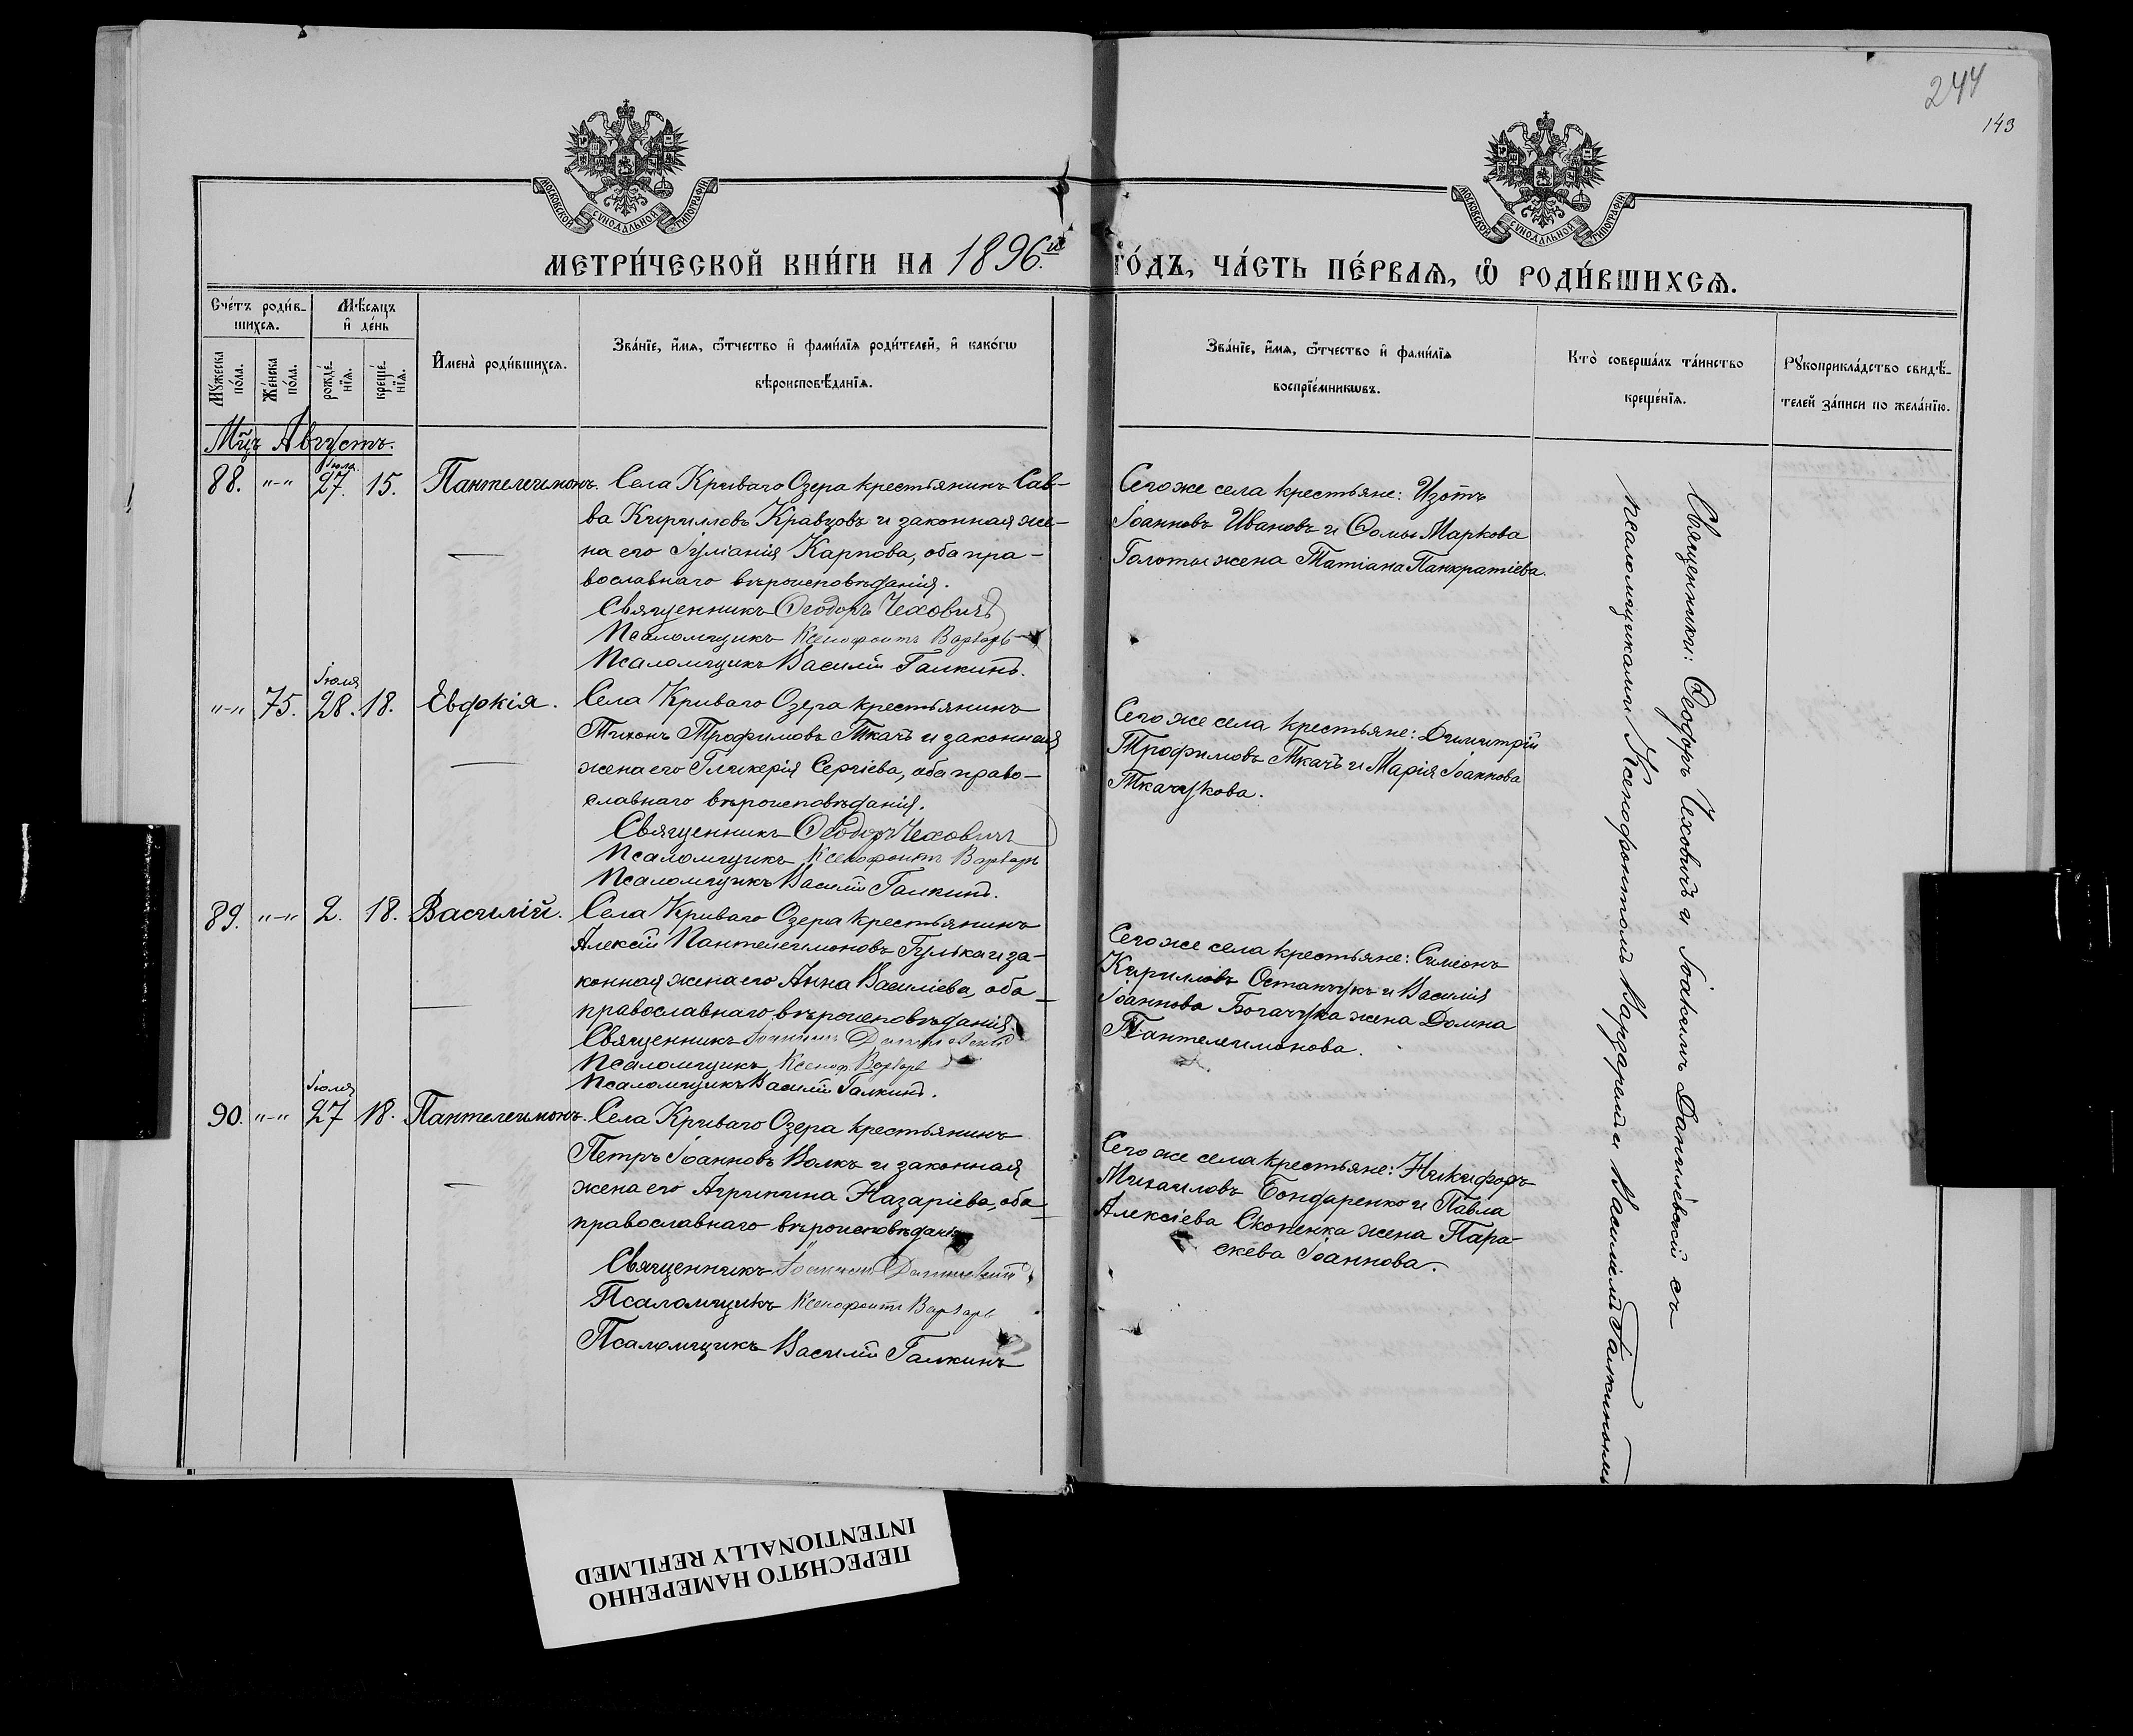 244
143
МОСКОВСКОЙ СѴНОДАЛЬНОЙ ТИПОГРАФІИ
МОСКОВСКОЙ СѴНОДАЛЬНОЙ ТИПОГРАФІИ
МЕТРИ́ЧЕСКОЙ КНИ́ГИ НА 1896.й го́дъ, ча́сть пе́рваѧ, ѡ҆ роди́вшихсѧ.
Сче́тъ роди́в-
шихсѧ.
Мѣ́сѧцъ
и҆ де́нь
Мꙋ́жеска
по́ла.
Же́нска
по́ла.
рожде́-
нїѧ.
креще́-
нїѧ.
И҆мена̀ роди́вшихсѧ.
Зва́нїе, и҆́мѧ, ѻ҆́тчество и҆ фами́лїѧ роди́телей, и҆ како́гѡ
вѣроисповѣ́данїѧ.
Зва́нїе, и҆́мѧ, ѻ҆́тчество и҆ фами́лїѧ
воспрїе́мникѡвъ.
Кто̀ соверша́лъ та́инство
креще́нїѧ.
Рꙋкоприкла́дство свидѣ́-
телей за́писи по жела́нїю.
Мц҃ъ Августъ.
88. "-" Іюля 27. 15. Пантелеимонъ. Села Криваго Озера крестьянинъ Сав-
ва Кирилловъ Кравцовъ и законная же-
на его Іуліанія Карпова, оба пра-
вославнаго вѣроисповѣданія.
Священникъ Ѳеодоръ Чеховичъ
Псаломщикъ Ксенофонтъ Варварь
Псаломщикъ Василій Галкинъ.
Сегоже села крестьяне: Изотъ
Іоанновъ Ивановъ и Ѳомы Маркова
Голоты жена Татіана Панкратіева.
"-" 75. Іюля 28. 18. Евдокія. Села Криваго Озера крестьянинъ
Тихонъ Трофимовъ Ткачъ и законная
жена его Гликерія Сергіева, оба право-
славнаго вѣроисповѣданія.
Священникъ Ѳеодоръ Чеховичъ
Псаломщикъ Ксенофонтъ Варварь
Псаломщикъ Василій Галкинъ.
Сегоже села крестьяне: Димитрій
Трофимовъ Ткачъ и Марія Іоаннова
Ткачукова.
89. "-" 2. 18. Василій. Села Криваго Озера крестьянинъ
Алексій Пантелеимоновъ Гулька и за-
конная жена его Анна Василіева, оба
православнаго вѣроисповѣданія.
Священникъ Іоакимъ Данилевскій
Псаломщикъ Ксеноф. Варварь
Псаломщикъ Василій Галкинъ.
Сегоже села крестьяне: Симеонъ
Кирилловъ Останчукъ и Василія
Іоаннова Богачука жена Домна
Пантелеимонова.
90. "-" Іюля 27 18. Пантелеимонъ. Села Криваго Озера крестьянинъ
Петръ Іоанновъ Волкъ и законная
жена его Агрипина Назаріева, оба
православнаго вѣроисповѣданія
Священникъ Іоакимъ Данилевскій
Псаломщикъ Ксенофонтъ Варварь
Псаломщикъ Василій Галкинъ
Сегоже села крестьяне: Никифоръ
Михаиловъ Бондаренко и Павла
Алексіева Скопенка жена Пара-
скева Іоаннова.
Священники: Ѳеодоръ Чеховичъ и Іоакимъ Данилевскій съ
псаломщиками Ксенофонтомъ Варваремъ и Василіемъ Галкинымъ
ПЕРЕСНЯТО НАМЕРЕННО
INTENTIONALLY REFILMED